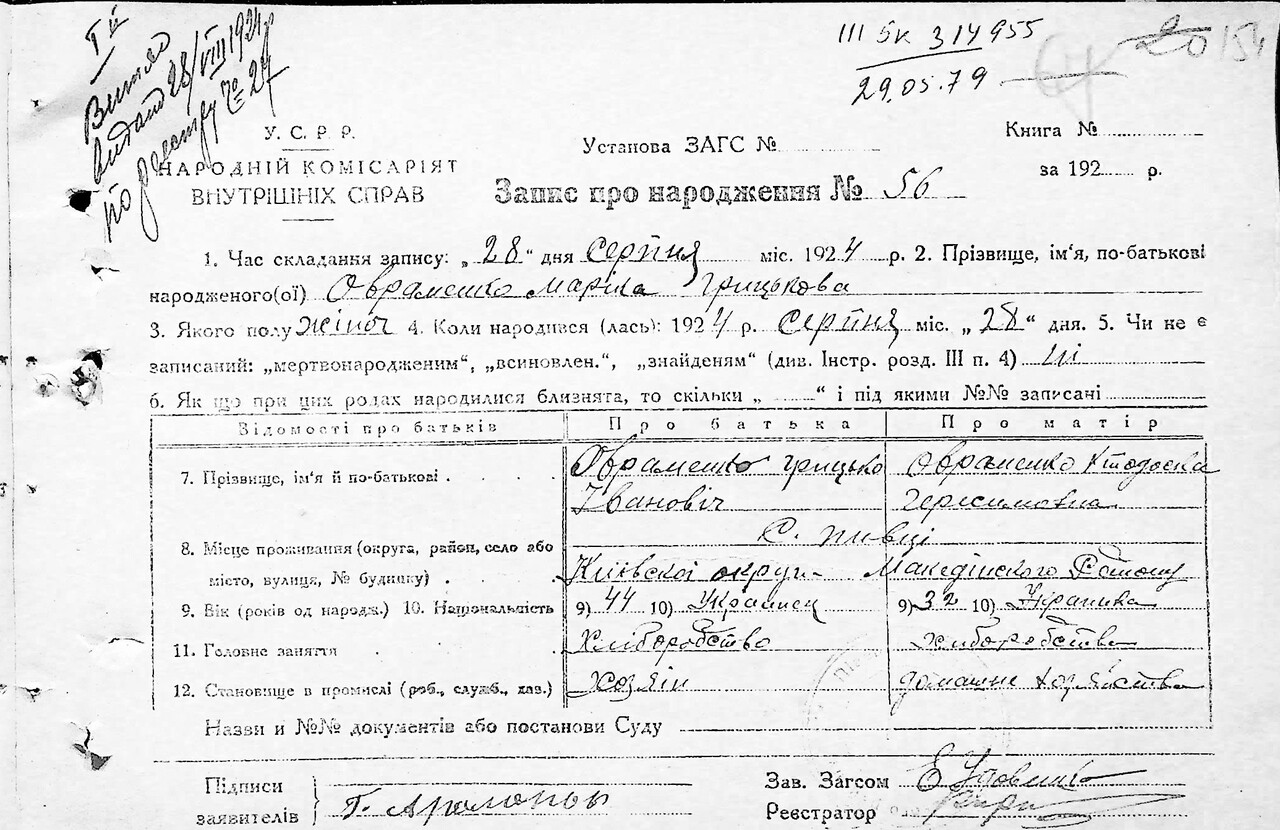 III БК 314955
29.05.79
20154
Витяг
видано 28/VIII 1924 р
по реєстру № 24
У. С. Р. Р.
НАРОДНІЙ КОМІСАРІЯТ
ВНУТРІШНІХ СПРАВ
Установа ЗАГС №
Книга №
за 192 р.
Запис про народження № 56
1. Час складання запису: „28“ дня Серпня міс. 1924 р. 2. Прізвище, ім‘я, по-батькові
народженого(ої) Овраменко Марія Грицькова
3. Якого полу жіноч 4. Коли народився (лась): 1924 р. Серпня міс. „28“ дня. 5. Чи не є
записаний: „мертвонародженим“, „всиновлен.“, „знайденям“ (див. Інстр. розд. III п. 4) ні
6. Як що при цих родах народилися близнята, то скільки „ “ і під якими №№ записані
Відомості про батьків Про батька Про матір
7. Прізвище, ім‘я й по-батькові Овраменко Грицько Овраменко
Івановіч
8. Місце проживання (округа, район, село або С. Пивці
місто, вулиця, № будинку) Київскої округи Македінского Району
9. Вік (років од народж.) 10. Національність 9) 44 10) Украинец 9) 32 10) Украинка
11. Головне заняття Хліборобство хліборобства
12. Становище в промислі (роб., служб., хаз.) хозяін домашне хозяйства
Назви и №№ документів або постанови Суду
Підписи
заявителів Г.
Зав. Загсом Е Удовенко
Реєстратор